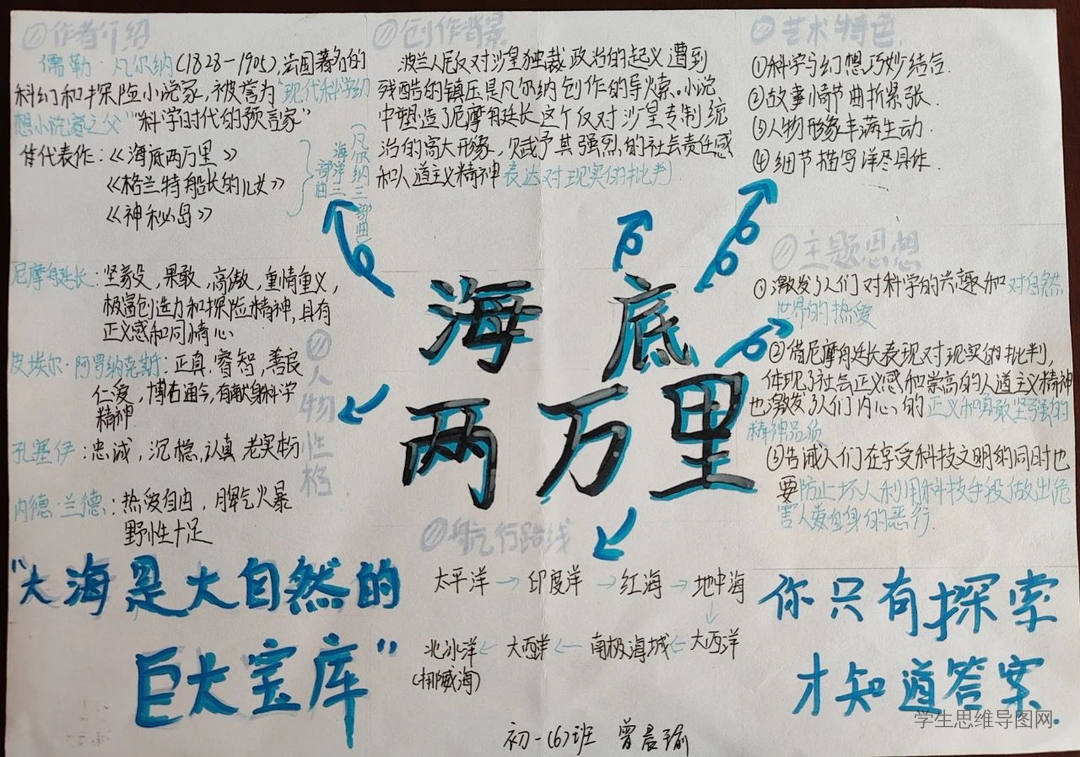 作者介绍
儒勒·凡尔纳(1828-1905),法国著名的
科幻和探险小说家,被誉为"现代科学幻
想小说家之父""科学时代的预言家"
代表作:《海底两万里》
《格兰特船长的儿女》
《神秘岛》
(凡尔纳三部曲)
海洋三
部曲
创作背景
波兰人民反对沙皇独裁政治的起义遭到
残酷的镇压是凡尔纳创作的导火索.小说
中塑造了尼摩船长这个反对沙皇专制统
治的高大形象,赋予其强烈的社会责任感
和人道主义精神表达对现实的批判.
艺术特色
①科学与幻想巧妙结合.
②故事情节曲折紧张.
③人物形象丰满生动.
④细节描写详尽具体
主题思想
①激发了人们对科学的兴趣和对自然
世界的热爱
②借尼摩船长表现对现实的批判,
体现了社会正义感和崇高的人道主义精神
也激发了人们内心的正义和勇敢坚强的
精神品质
③告诫人们在享受科技文明的同时也
要防止坏人利用科技手段做出危
害人类自身的恶行.
尼摩船长:坚毅,果敢,高傲,重情重义,
极富创造力和探险精神,具有
正义感和同情心
皮埃尔·阿罗纳克斯:正真,睿智,善良
仁爱,博古通今,有献身科学
精神
孔塞伊:忠诚,沉稳,认真 老实
内德·兰德:热爱自由,脾气火暴
野性十足
人物性格
海底
两万里
航行路线
太平洋→印度洋→红海→地中海
↓
北冰洋←大西洋←南极海域←大西洋
(挪威海)
"大海是大自然的
巨大宝库"
你只有探索
才知道答案.
初一(6)班 曾晨瑜
学生思维导图网